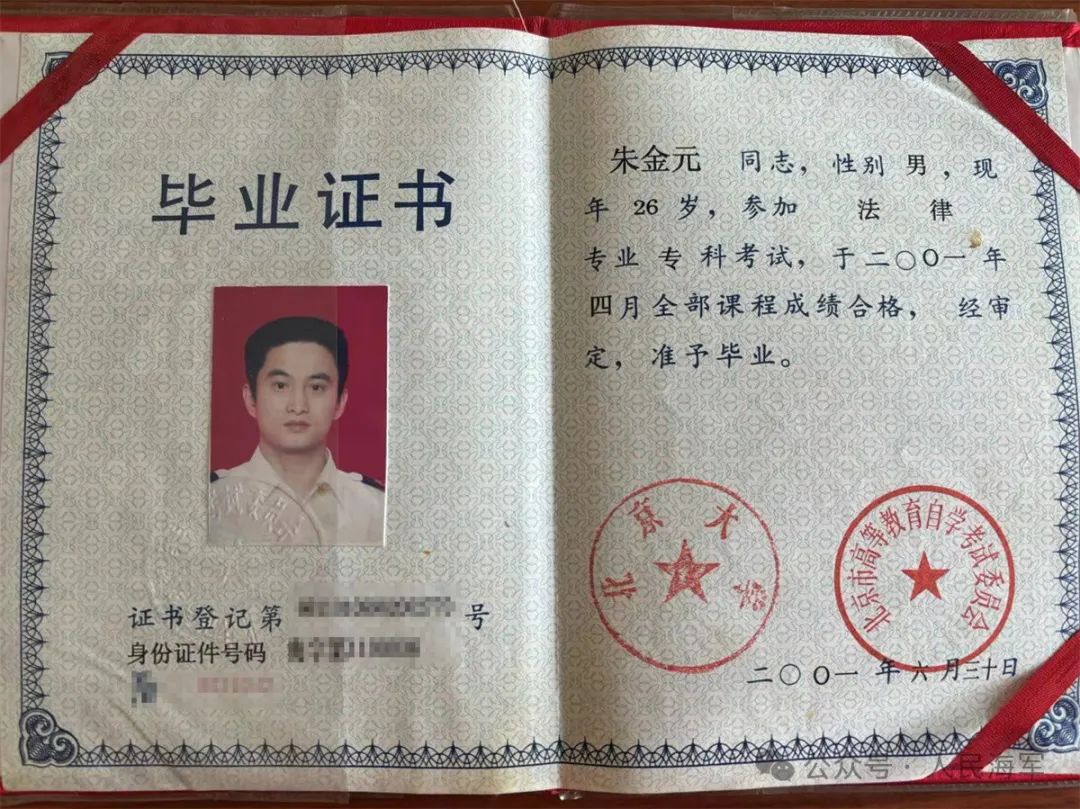 毕业证书
证书登记第 号
身份证件号码
朱金元 同志，性别 男，现
年 26 岁，参加 法 律
专业 专 科考试，于二〇〇一年
四月全部课程成绩合格， 经审
定， 准予毕业。
北京大学
北京市高等教育自学考试委员会
二〇〇一 年 六 月三十日
公众号 · 人民海军